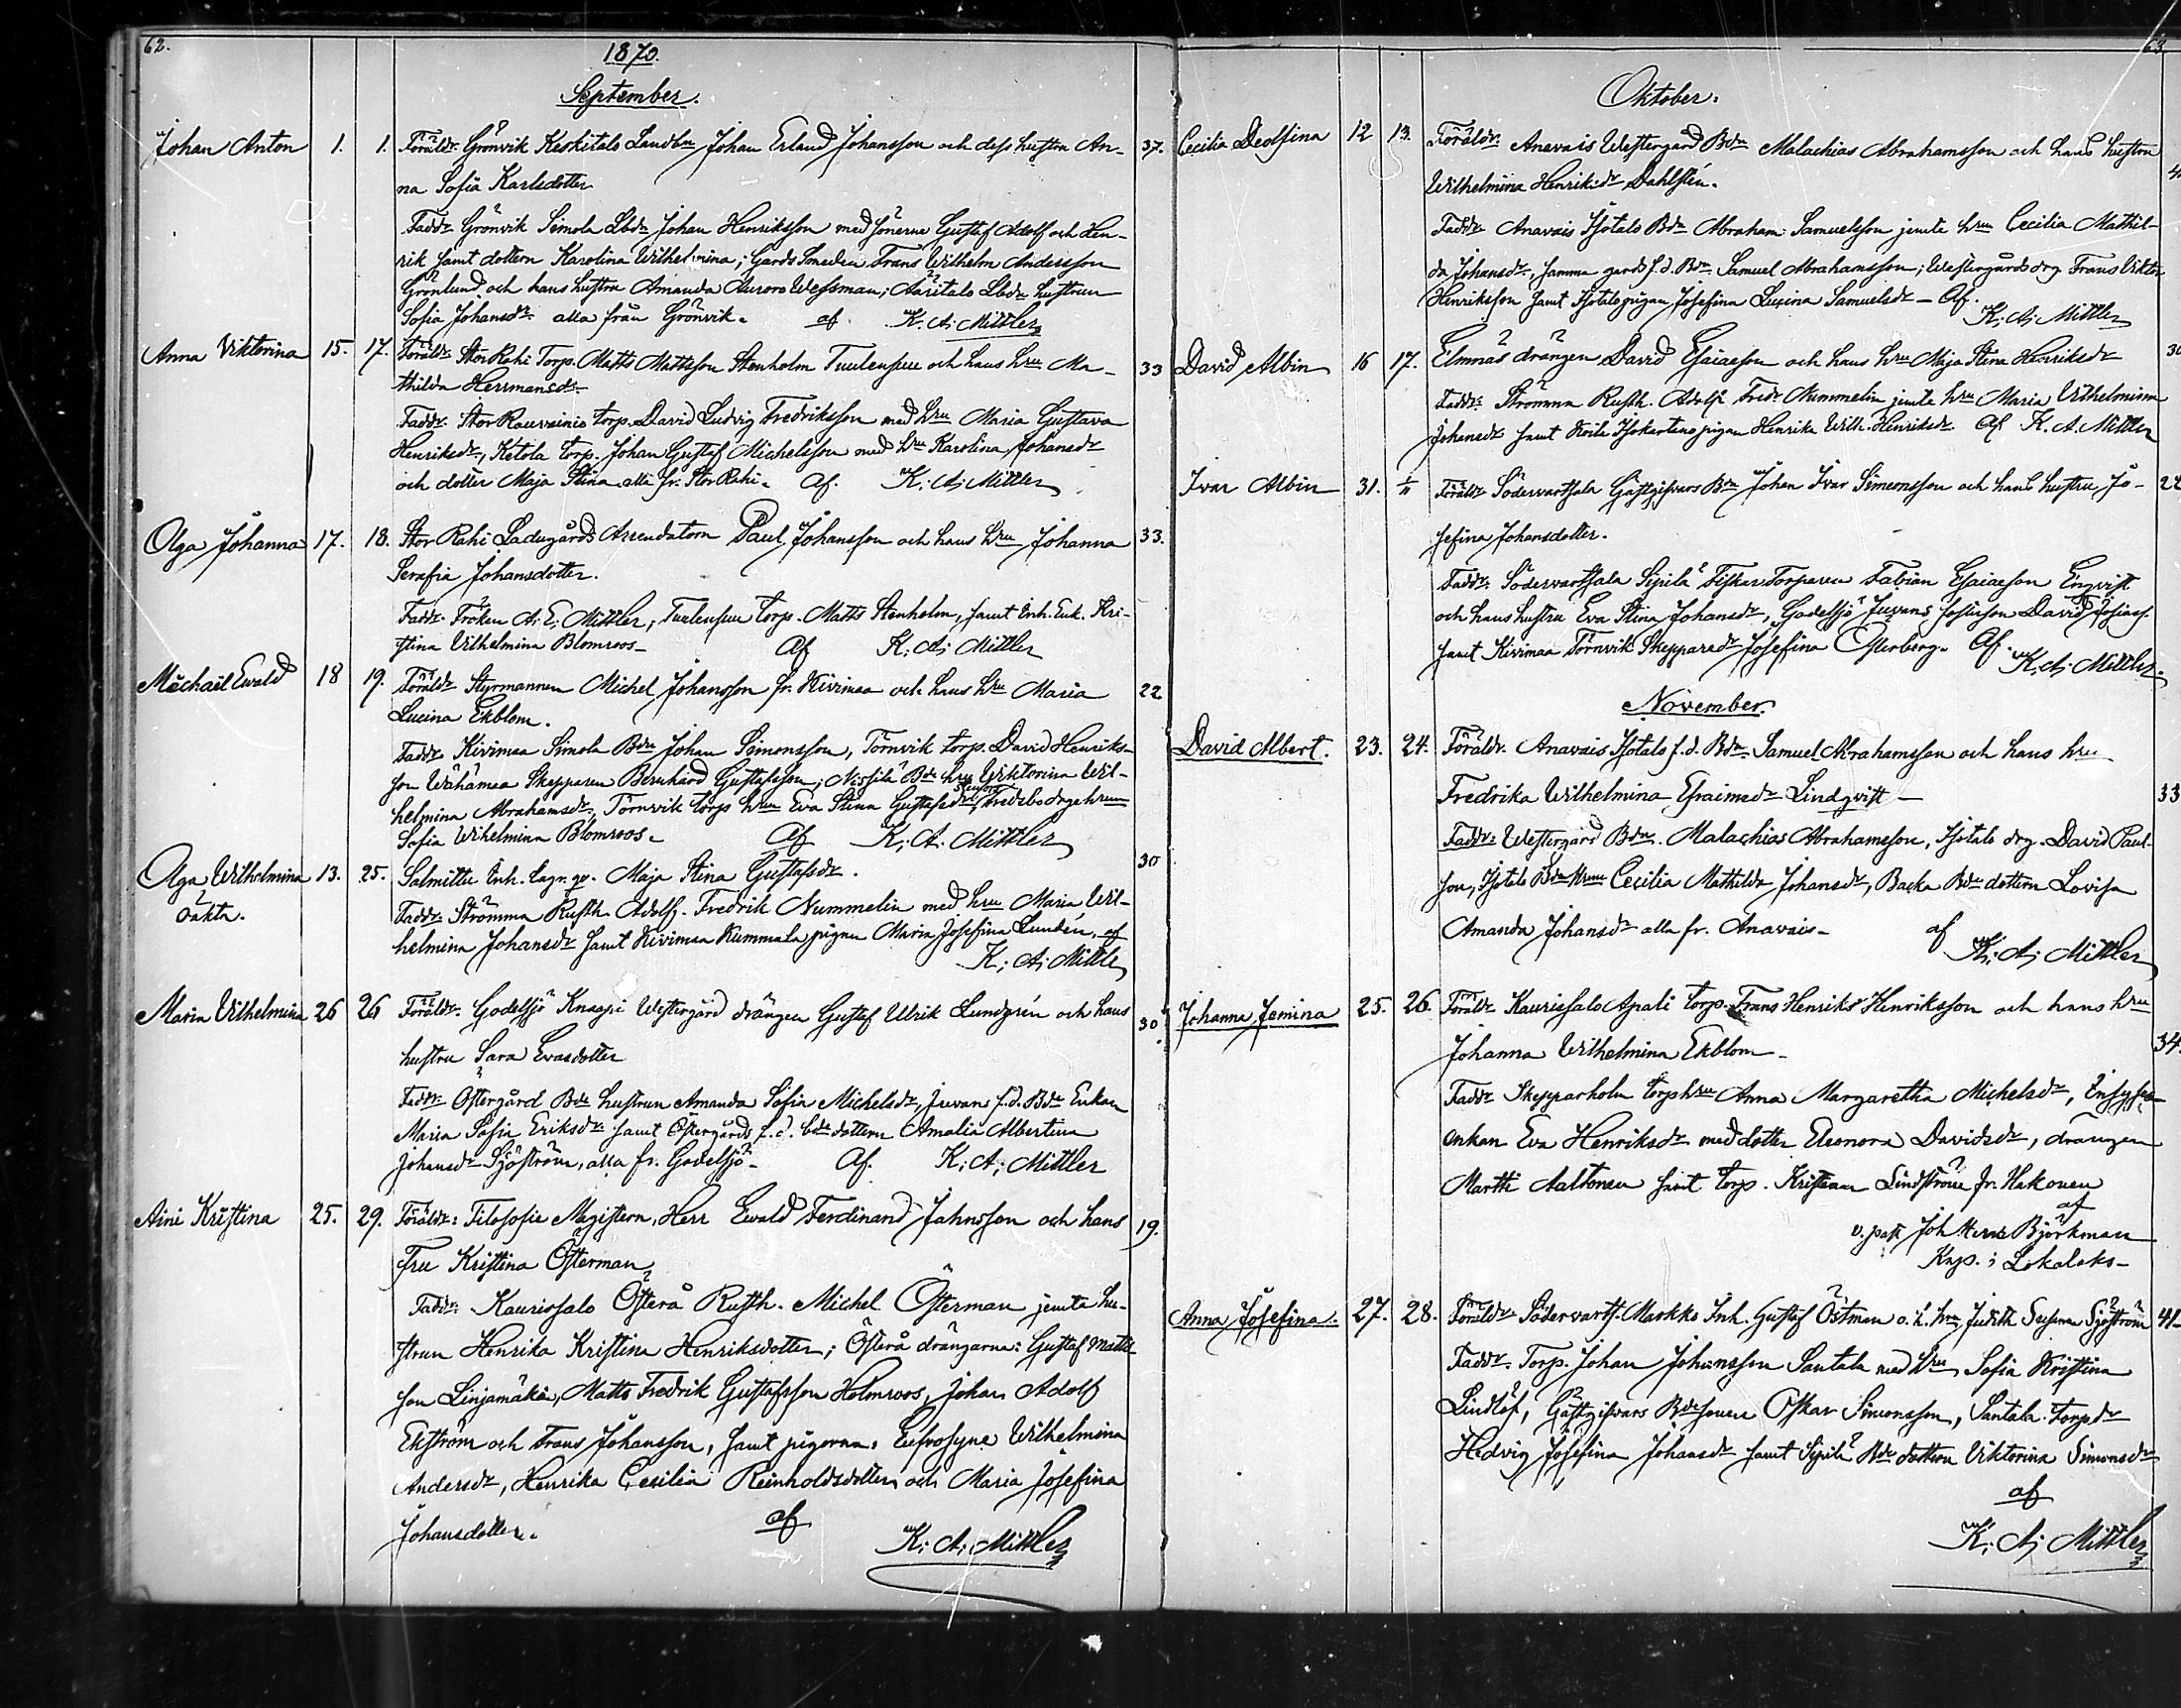 62.
1870.
September.
Johan Anton 1. 1. Föräldr. Grönvik Keskitalo Landbn Johan Erland Johansson och dess hustru An- 37.
na Sofia Karlsdotter
Faddr. Grönvik Simola Lbdn Johan Henriksson med sönerna Gustaf Adolf och Hen-
rik samt dottern Karolina Wilhelmina; Gards Smeden Frans Wilhelm Andersson
Grönlund och hans hustru Amanda Aurora Wessman; Aaritalo Lbdn hustrun
Sofia Johansdr alla från Grönvik. af K. A. Mittler
Anna Viktorina 15. 17. Föräldr. Stor Rahi Torp. Matts Mattsson Stenholm Tuulensuu och hans hru Ma- 33
thilda Hermansdr
Faddr. Stor Rauvainio torp. David Ludvig Fredriksson med hru Maria Gustava
Henriksdr, Ketola torp. Johan Gustaf Michelsson med hru Karolina Johansdr
och dotter Maja Stina alla fr. Stor Rahi. Af. K. A. Mittler
Olga Johanna 17. 18. Stor Rahi Ladugårds Arrendatorn Paul Johansson och hans hru Johanna 33.
Serafia Johansdotter.
Faddr. Fröken A. E. Mittler, Tuulensuu torp. Matts Stenholm, samt Inh. Enk. Kri-
stina Vilhelmina Blomroos Af K. A. Mittler
Michail Ewald 18 19. Föräldr Styrmannen Michel Johansson fr. Kivimaa och hans hru Maria 22
Lucina Ekblom.
Faddr. Kivimaa Simola Bdn Johan Simonsson, Törnvik torp. David Henriks-
son Wähämaa Skepparen Bernhard Gustafsson; Nissilä Bde hru Viktorina Wil-
helmina Abrahamsdr, Törnvik torps hrun Eva Stina Gustafsdr, Fredsbo drgehrun
Sofia Wilhelmina Blomroos. Af K. A. Mittler
Olga Wilhelmina 13. 25. Salmittu Inh. lagr. qv. Maja Stina Gustafsdr. 30
oäkta. Faddr. Strömma Rusth. Adolf Fredrik Nummelin med hru Maria Wil-
helmina Johansdr samt Kivimaa Kummala pigan Maria Josefina Lundén, af
K. A. Mittler
Maria Vilhelmina 26 26 Föräldr. Godelsjö Knaapi Westergård drängen Gustaf Ulrik Lundgrén och hans 30
hustru Sara Evasdotter
Faddr. Östergård Bde hustrun Amanda Sofia Michelsdr, Juvans f.d. Bde Enkan
Maria Sofia Eriksdr samt Östergårds f.d. bde dottern Amalia Albertina
Johansdr Sjöström, alla fr. Godelsjö. Af. K. A. Mittler
Aini Kristina 25. 29. Föräldr: Filosofie Magistern, Herr Ewald Ferdinand Jahnsson och hans 19.
Fru Kristina Österman
Faddr: Kaurissalo Österå Rusth. Michel Österman jemte hu-
strun Henrika Kristina Henriksdotter; Österå drängarna: Gustaf Matts-
son Linjamäki, Matts Fredrik Gustafsson Holmroos, Johan Adolf
Ekström och Frans Johansson, samt pigorna: Eufrosyne Wilhelmina
Andersdr, Henrika Cecilia Reinholdsdotter och Maria Josefina
Johansdotter. af K. A. Mittler
63.
Oktober.
Cecilia Deolfina 12 13. Föräldr. Anavais Westergård Bdn Malachias Abrahamsson och hans hustru
Wilhelmina Henriksdr Dahlstén.
Faddr. Anavais Isotalo Bdn Abraham Samuelsson jemte hru Cecilia Mathil-
da Johansdr, samma gards f.d. Bdn Samuel Abrahamsson; Westergårds drg Frans Viktor
Henriksson samt Isotalo pigan Josefina Lucina Samuelsdr Af.
K. A. Mittler
David Albin 16 17. Elmnäs drängen David Esaiaeson och hans hru Maja Stina Henriksdr
Faddr. Strömma Rusth. Adolf Fredr Nummelin jemte hru Maria Vilhelmina
Johansdr samt Koila Isokartano pigan Henrika Wilh. Henriksdr. Af K. A. Mittler
Ivar Albin 31. 1/11 Föräldr Södervartsala Gästgifvars Bdn Johan Ivar Simonsson och hans hustru Jo- 22
sefina Johansdotter.
Faddr. Södervartsala Sipilä Fiskar Torparen Fabian Esaiaeson Enqvist
och hans hustru Eva Stina Johansdr, Godelsjö Juvans David
samt Kivimaa Törnvik Skepparedr Josefina Österberg. Af.
K. A. Mittler.
November.
David Albert. 23. 24. Föräldr. Anavais Isotalo f.d. Bdn Samuel Abrahamsson och hans hru
Fredrika Wilhelmina Efraimsdr Lindqvist 33
Faddr: Westergård Bdn. Malachias Abrahamsson, Isotalo drg. David Paul-
son, Isotalo Bde hrun Cecilia Mathilda Johansdr, Backa Bde dottern Lovisa
Amanda Johansdr alla fr. Anavais. af
K. A. Mittler
Johanna Jemina 25. 26. Föräldr Kaurissalo Apali torp. Frans Henriks Henriksson och hans hru
Johanna Wilhelmina Ekblom 34.
Faddr Skepparholm torphru Anna Margaretha Michelsdr, Inhyses
enkan Eva Henriksdr med dotter Eleonora Davidsdr, drängen
Martti Aaltonen samt torp. Kristian Lindström fr. Hakonen
af
v. past Joh Herm Björkman
Kap. i Lokalaks
Anna Josefina. 27. 28. Föräldr. Södervarts. Markko Inh. Gustaf Östman o. h. hru Judith Susanna Sjöström 41
Faddr. Torp. Johan Johansson Santala med hru Sofia Kristina
Lindlöf, Gästgifvars Bdesonen Oskar Simonsson, Santala Torpdr
Hedvig Josefina Johansdr samt Sipilä Bde dottern Viktorina Simonsdr
af
K. A. Mittler